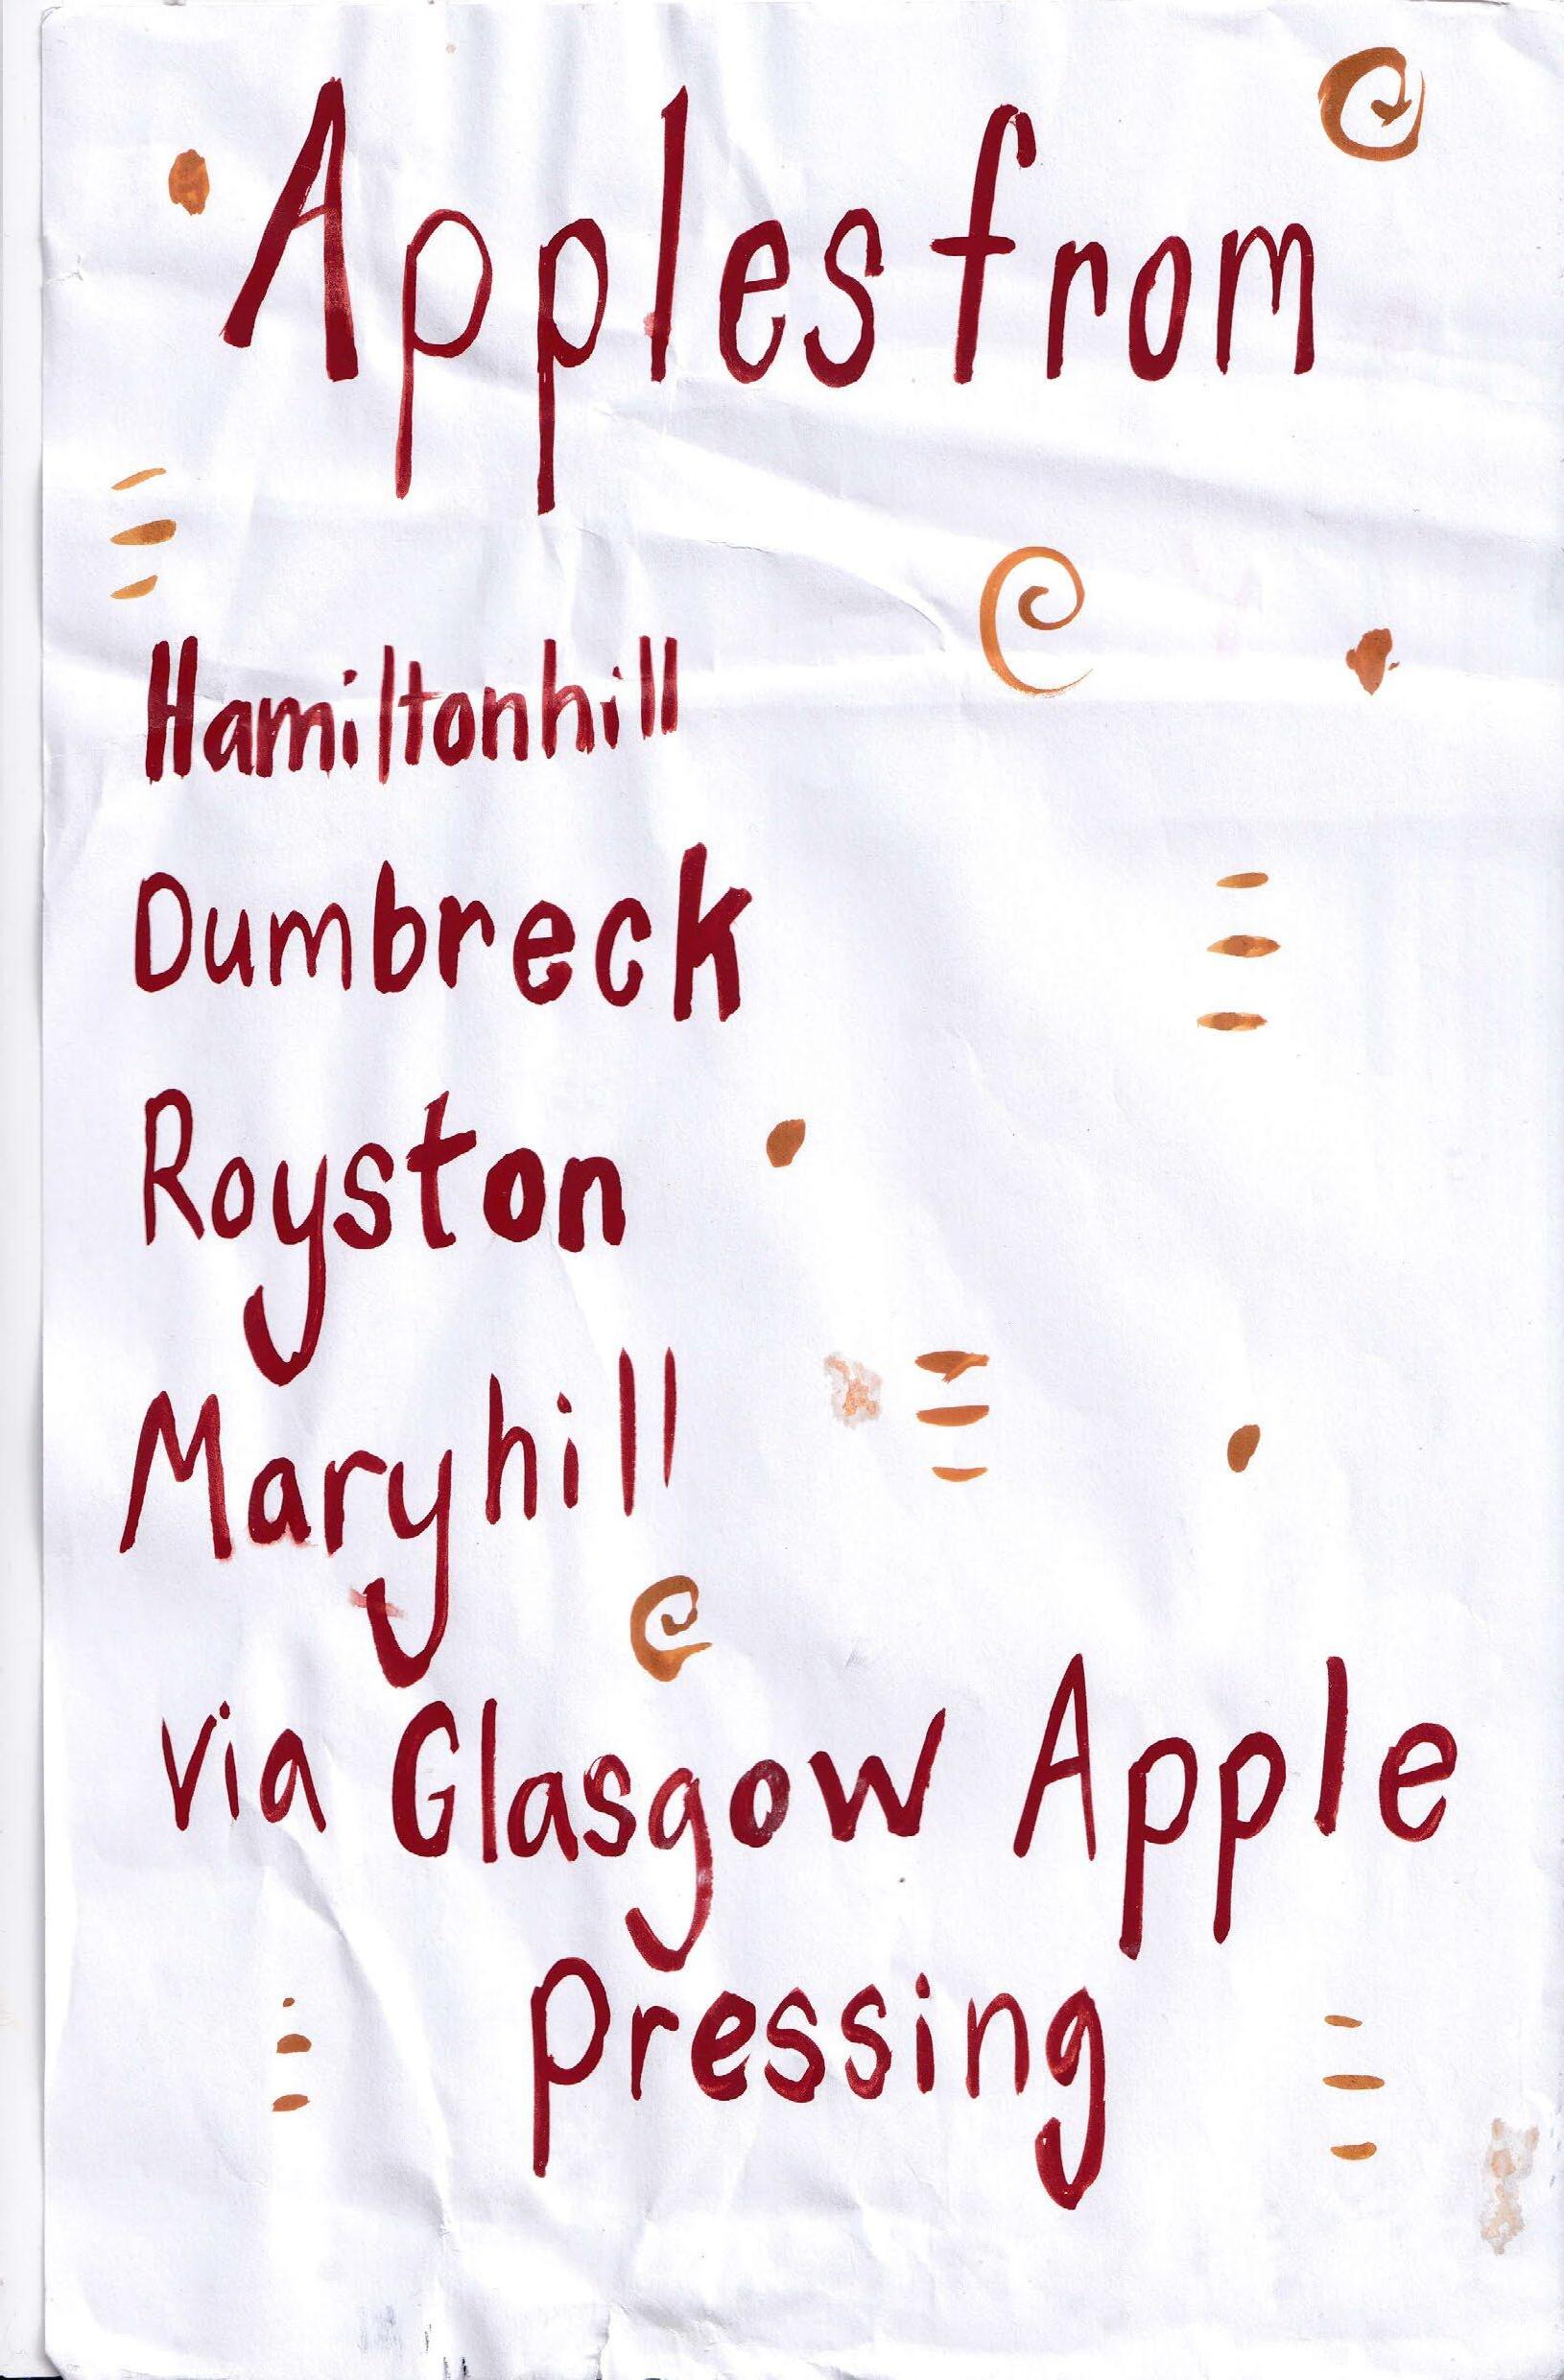 Apples from
Hamiltonhill
Dumbreck
Royston
Maryhill
via Glasgow Apple
pressing